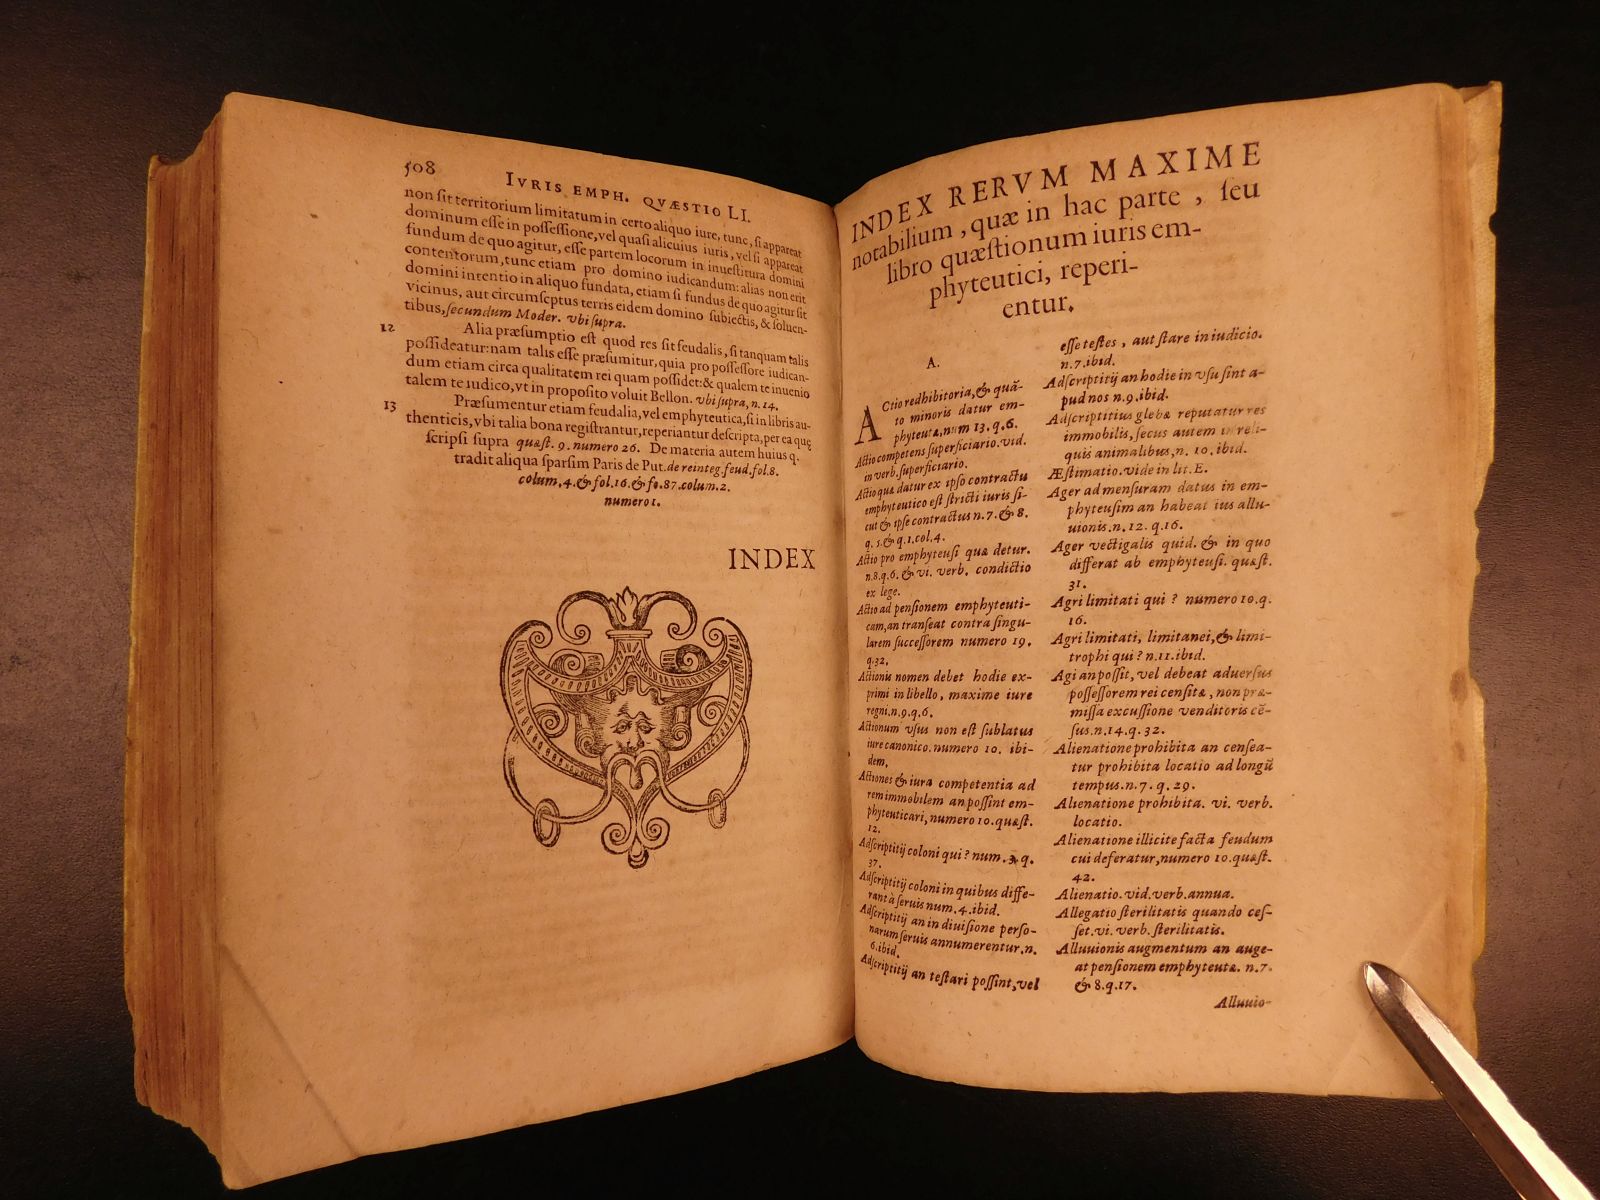 508
IVRIS EMPH. QVÆSTIO LI.
non ſit territorium limitatum in certo aliquo iure, tunc, ſi appareat
dominum eſſe in poſſeſſione, vel quaſi alicuius iuris, vel ſi appareat
fundum de quo agitur, eſſe partem locorum in inueſtitura domini
contentorum, tunc etiam pro domino iudicandum: alias non erit
domini intentio in aliquo fundata, etiam ſi fundus de quo agitur ſit
vicinus, aut circumſcptus terris eidem domino ſubiectis, & ſoluen-
tibus, ſecundum Moder. vbi ſupra.
12 Alia præſumptio eſt quod res ſit feudalis, ſi tanquam talis
poſſideatur: nam talis eſſe præſumitur, quia pro poſſeſſore iudican-
dum etiam circa qualitatem rei quam poſſidet: & qualem te inuenio
talem te iudico, vt in propoſito voluit Bellon. vbi ſupra, n. 14.
13 Præſumentur etiam feudalia, vel emphyteutica, ſi in libris au-
thenticis, vbi talia bona regiſtrantur, reperiantur deſcripta, per ea quę
ſcripſi ſupra quæſt. 9. numero 26. De materia autem huius q.
tradit aliqua ſparſim Paris de Put. de reinteg. feud. fol. 8.
colum. 4. & fol. 16. & fo. 87. colum. 2.
numero 1.
INDEX
INDEX RERVM MAXIME
notabilium, quæ in hac parte, ſeu
libro quæſtionum iuris em-
phyteutici, reperi-
entur.
A.
ACtio redhibitoria, & quā-
to minoris datur em-
phyteutæ, num 13. q. 6.
Actio competens ſuperficiario. vid.
in verb. ſuperficiario.
Actio quæ datur ex ipſo contractu
emphyteutico eſt ſtricti iuris ſi-
cut & ipſe contractus n. 7. & 8.
q. 5. & q. 1. col. 4.
Actio pro emphyteuſi quæ detur.
n. 8. q. 6. & vi. verb. condictio
ex lege.
Actio ad penſionem emphyteuti-
cam, an tranſeat contra ſingu-
larem ſucceſſorem numero 19.
q. 32.
Actionis nomen debet hodie ex-
primi in libello, maxime iure
regni. n. 9. q. 6.
Actionum vſus non eſt ſublatus
iure canonico. numero 10. ibi-
dem.
Actiones & iura competentia ad
rem immobilem an poſſint em-
phyteuticari, numero 10. quæſt.
12.
Adſcriptitij coloni qui? num. 3. q.
37.
Adſcriptitij coloni in quibus diffe-
rant à ſeruis num. 4. ibid.
Adſcriptitij an in diuiſione perſo-
narum ſeruis annumerentur, n.
6. ibid.
Adſcriptitij an teſtari poſſint, vel
eſſe teſtes, aut ſtare in iudicio.
n. 7. ibid.
Adſcriptitij an hodie in vſu ſint a-
pud nos n. 9. ibid.
Adſcriptitius glebæ reputatur res
immobilis, ſecus autem in reli-
quis animalibus, n. 10. ibid.
Æſtimatio. vide in lit. E.
Ager ad menſuram datus in em-
phyteuſim an habeat ius allu-
uionis. n. 12. q. 16.
Ager vectigalis quid. & in quo
differat ab emphyteuſi. quæſt.
31.
Agri limitati qui? numero 10. q.
16.
Agri limitati, limitanei, & limi-
trophi qui? n. 11. ibid.
Agi an poſſit, vel debeat aduerſus
poſſeſſorem rei cenſitæ, non præ-
miſſa excuſſione venditoris cē-
ſus. n. 14. q. 32.
Alienatione prohibita an cenſea-
tur prohibita locatio ad longū
tempus. n. 7. q. 29.
Alienatione prohibita. vi. verb.
locatio.
Alienatione illicite facta feudum
cui deferatur, numero 10. quæſt.
42.
Alienatio. vid. verb. annua.
Allegatio ſterilitatis quando ceſ-
ſet. vi. verb. ſterilitatis.
Alluuionis augmentum an auge-
at penſionem emphyteutæ. n. 7.
& 8. q. 17.
Alluuio-